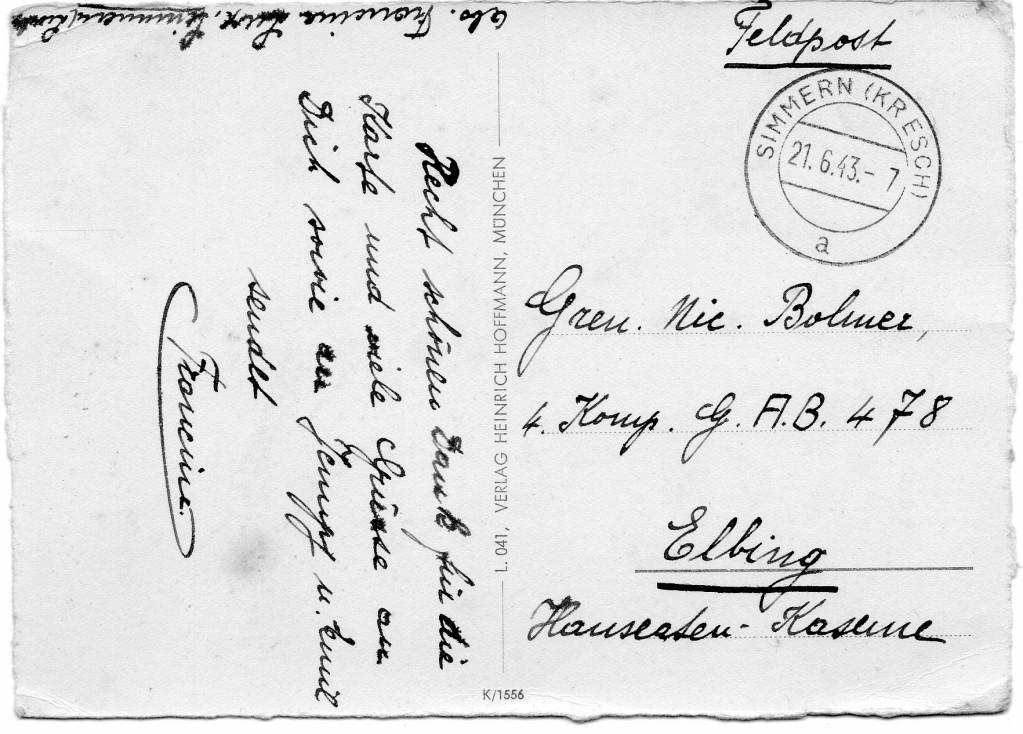 Abs. Francine
Feldpost
SIMMERN (KR ESCH)
21.6.43.-7
a
Recht schönen Dank für die
Karte und viele Grüsse an
Dich sowie an Jempy u. Emil
sendet
Francine.
L. 041, VERLAG HEINRICH HOFFMANN, MÜNCHEN
K/1556
Gren. Nic. Bolmer,
4. Komp. G. A.B. 478
Elbing
Hanseaten-Kaserne